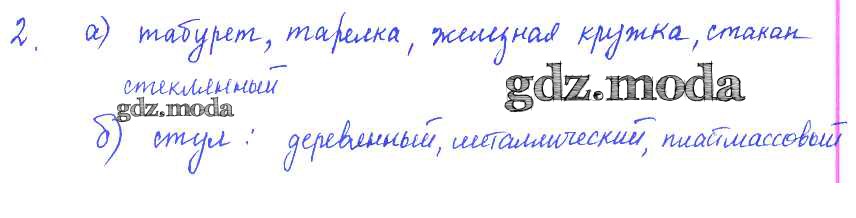 2. а) табурет, тарелка, железная кружка, стакан
стеклянный
gdz.moda
gdz.moda
б) стул: деревянный, металлический, пластмассовый